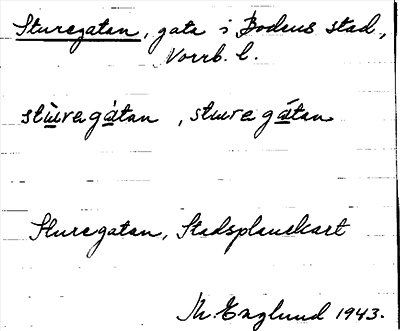 Sturegatan, gata i Bodens stad,
Norrb. l.
stùregàtan, stureg̱átan
Sturegatan, Stadsplanekart
Th. Englund 1943.